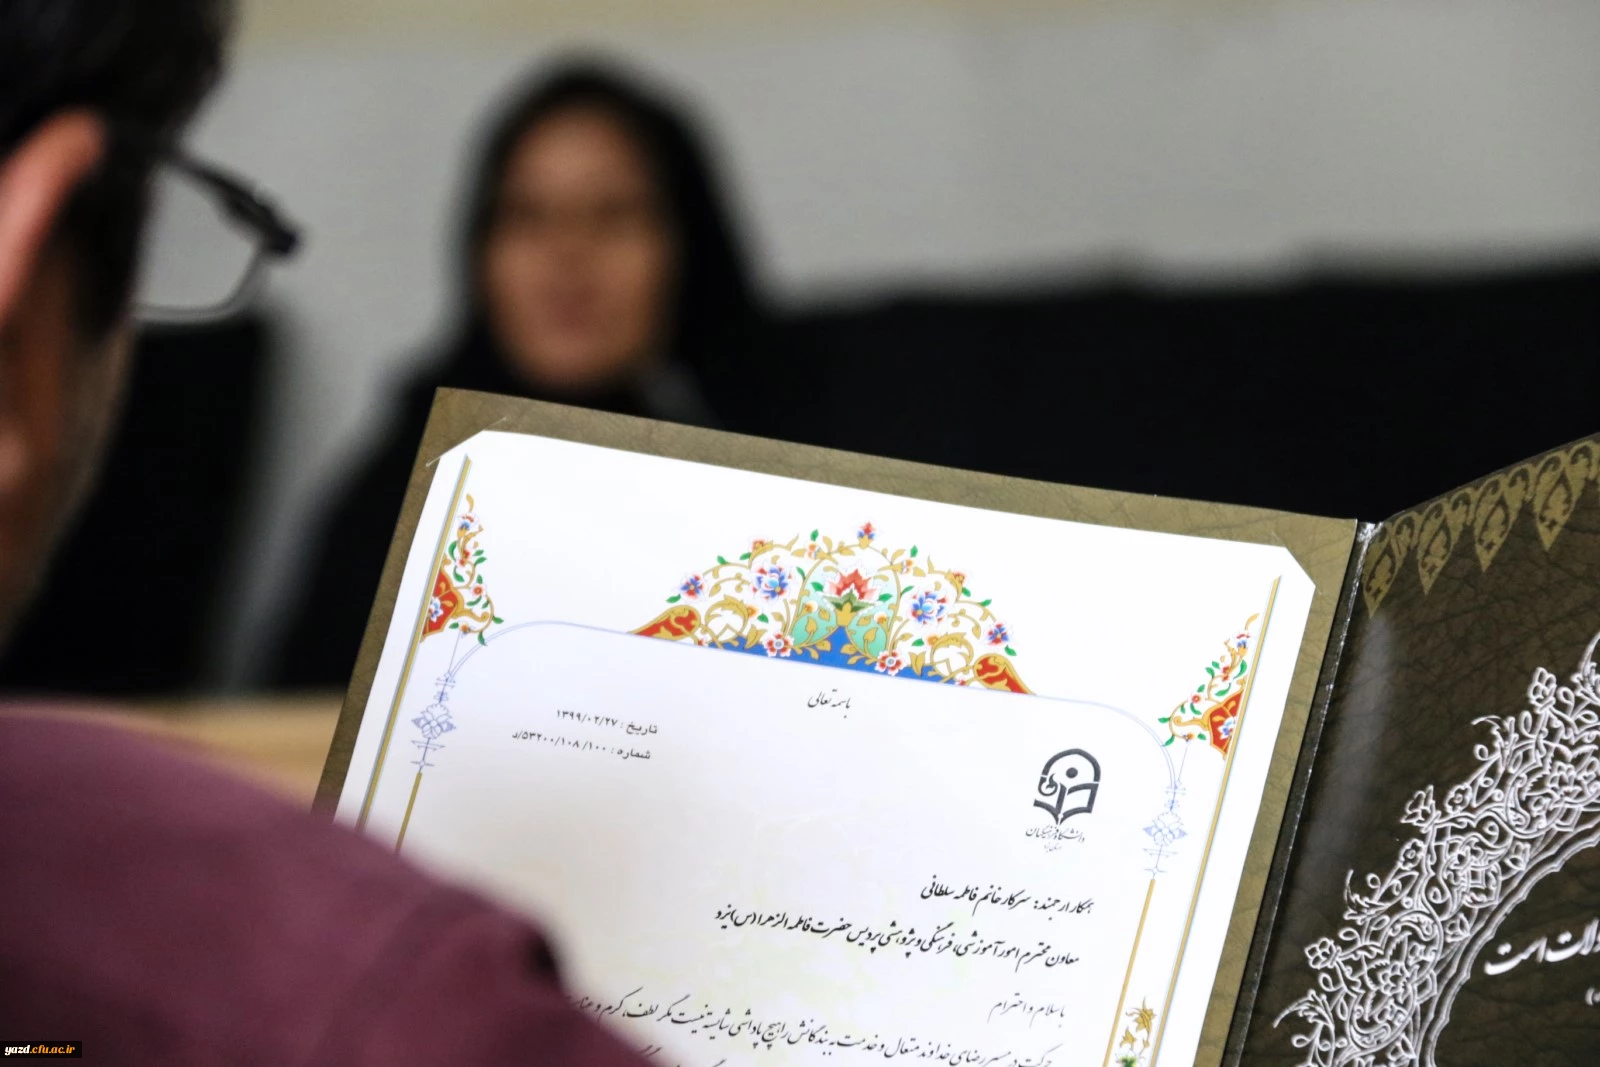 باسمه تعالی
تاریخ : ۱۳۹۹/۰۲/۲۷
شماره : ۵۳۲۰۰/۱۰۸/۱۰۰/د
دانشگاه فرهنگیان
همکار ارجمند: سرکار خانم فاطمه سلطانی
معاون محترم امور آموزشی، فرهنگی و پژوهشی پردیس حضرت فاطمه الزهرا(س) یزد
با سلام و احترام
حرکت در مسیر رضای خداوند متعال و خدمت به بندگانش را هیچ پاداشی شایسته نیست مگر لطف، کرم و
است
yazd.cfu.ac.ir